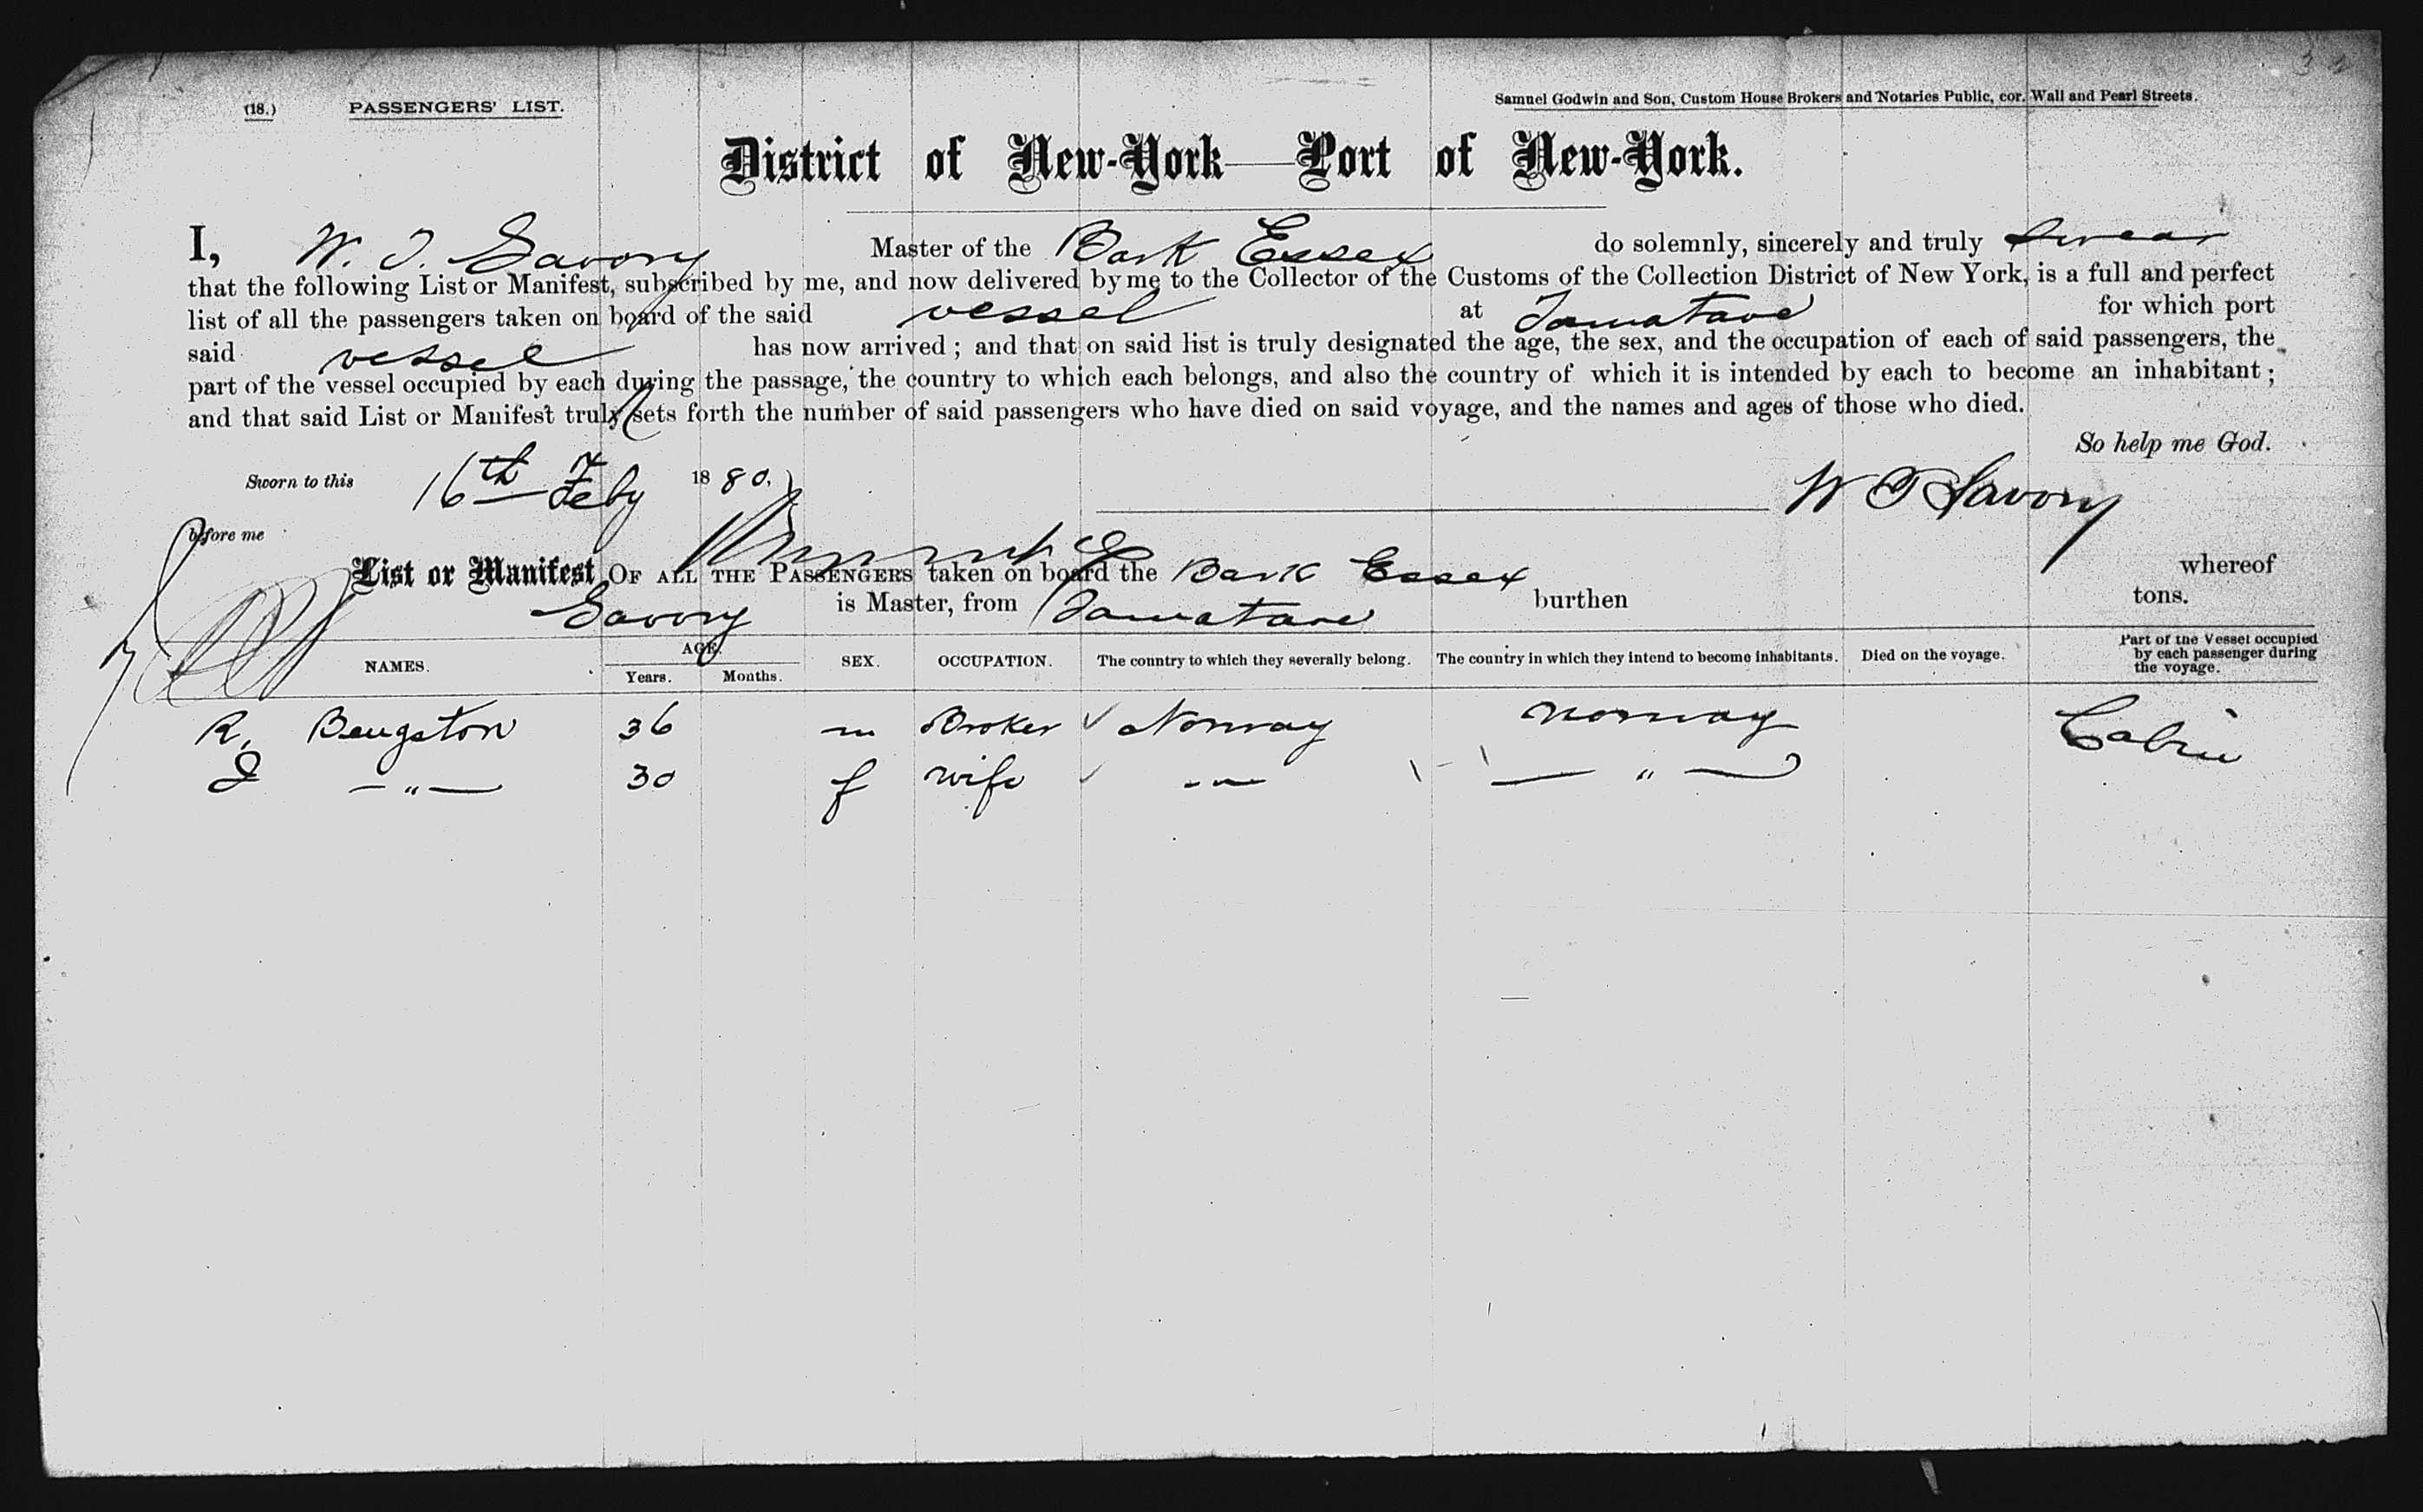 32
(18.) PASSENGERS' LIST. Samuel Godwin and Son, Custom House Brokers and Notaries Public, cor. Wall and Pearl Streets.
District of New-York—Port of New-York.
I, W. T. Savory Master of the Bark Essex do solemnly, sincerely and truly swear
that the following List or Manifest, subscribed by me, and now delivered by me to the Collector of the Customs of the Collection District of New York, is a full and perfect
list of all the passengers taken on board of the said vessel at Tamatave for which port
said vessel has now arrived; and that on said list is truly designated the age, the sex, and the occupation of each of said passengers, the
part of the vessel occupied by each during the passage, the country to which each belongs, and also the country of which it is intended by each to become an inhabitant;
and that said List or Manifest truly sets forth the number of said passengers who have died on said voyage, and the names and ages of those who died.
So help me God.
Sworn to this 16th Feby 1880. W T Savory
before me
List or Manifest OF ALL THE PASSENGERS taken on board the Bark Essex whereof
Savory is Master, from Tamatave burthen tons.
NAMES. AGE. Years. Months. SEX. OCCUPATION. The country to which they severally belong. The country in which they intend to become inhabitants. Died on the voyage. Part of the Vessel occupied by each passenger during the voyage.
R. Bengston 36 m Broker ✓ Norway Norway Cabin
J —"— 30 f wife ✓ -"- — " —